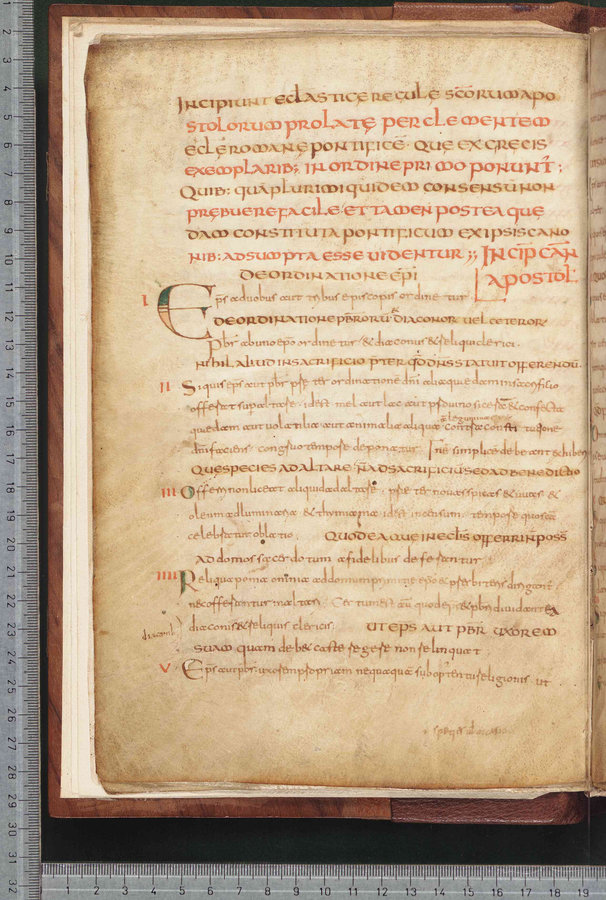 INCIPIUNT ECLASTICĘ REGULĘ SCŌRUM APO
STOLORUM PROLATĘ PER CLEMENTEM
ECLĘ ROMANĘ PONTIFICĒ · QUE EX GRECIS
EXEMPLARIB; IN ORDINE PRIMO PONUNT̄ ;
QUIB: QUA PLURIMI QUIDEM CONSENSŪ NON
PRĘBUERE FACILE · ET TAMEN POSTEA QUE
DAM CONSTITUTA PONTIFICUM EX IPSIS CANO
NIB: ADSUMPTA ESSE UIDENTUR ;; INCIP̄ CAÑ
DE ORDINATIONE EP̄I APOSTOL̄
I Ep̄s a duobus aut tribus episcopis ordinetur
DE ORDINATIONE PB̄RORŪ DIACONOR̄ UEL CETEROR̄
Pb̄r ab uno ep̄o ordinetur · & diaconus & reliqui clerici ·
NIHIL ALIUD IN SACRIFICIO PR̄TER QD̄ DN̄S STATUIT OFFERENDŪ
II Siquis ep̄s aut pb̄r pr̄ter ordinatione dn̄i alia quedam in sacrificio
offerat sup altare · idest mel aut lac aut
quedam aut uolatilia aut animalia aliqua
dn̄i faciens congruo tempore deponatur ·
QUE SPECIES AD ALTARE N̄ AD SACRIFICIŪ SED AD BENEDICTIO
III Offerri non liceat aliquid ad altare · preter nouas spicas & uuas &
oleum ad luminaria & thymiama idest incensum tempore quo sc̄a
celebratur oblatio · QUOD EA QUE IN ECL̄IS OFFERRI N POSS̄
AD DOMOS SACERDOTUM A FIDELIBUS DEFERANTUR
IIII Reliqua poma omnia ad domum primitię ep̄o & pr̄biteris dirigant̄
nec offerantur in altari · Certum est aū quod ep̄s & pb̄ri diuidant
diaconis & reliquis clericis · UT EP̄S AUT PB̄R UXOREM
SUAM QUAM DEB& CASTE REGERE NON RELINQUAT
V Ep̄s aut pb̄r uxorem propriam nequaquā sub obtentu religionis ut